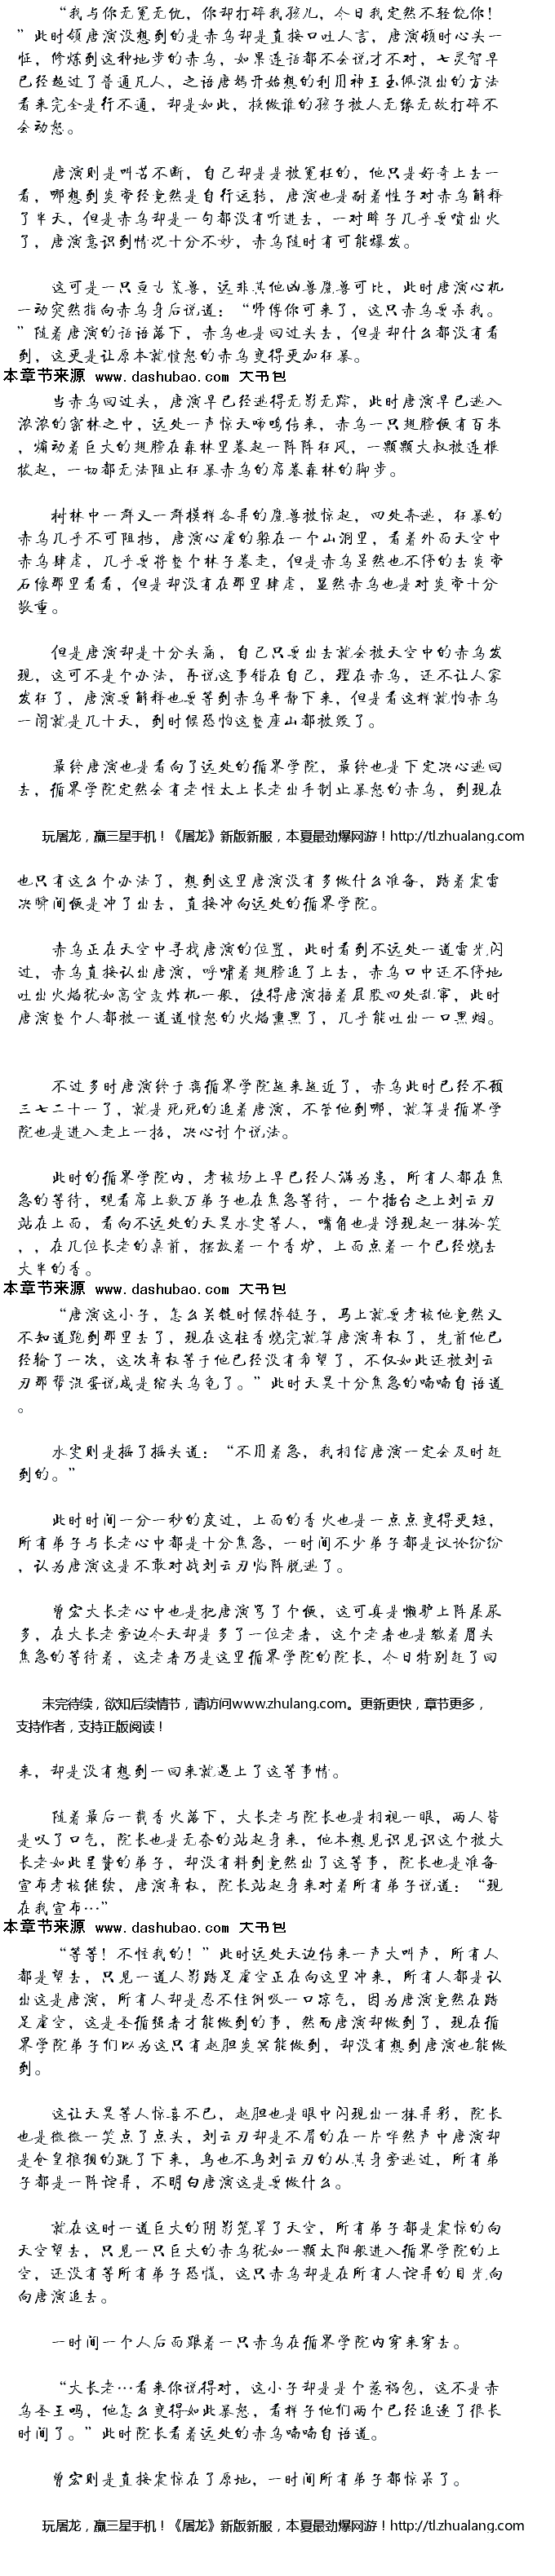 “我与你无冤无仇，你却打碎我孩儿，今日我定然不轻饶你！
”此时领唐演没想到的是赤乌却是直接口吐人言，唐演顿时心头一
怔，修炼到这种地步的赤乌，如果连话都不会说才不对，七灵智早
已经超过了普通凡人，之语唐鸫开始想的利用神王玉佩混出的方法
看来完全是行不通，却是如此，换做谁的孩子被人无缘无故打碎不
会动怒。
唐演则是叫苦不断，自己却是是被冤枉的，他只是好奇上去一
看，哪想到炎帝经竟然是自行运转，唐演也是耐着性子对赤乌解释
了半天，但是赤乌却是一句都没有听进去，一对眸子几乎要喷出火
了，唐演意识到情况十分不妙，赤乌随时有可能爆发。
这可是一只亘古荒兽，远非其他凶兽魔兽可比，此时唐演心机
一动突然指向赤乌身后说道：“师傅你可来了，这只赤乌要杀我。
”随着唐演的话语落下，赤乌也是回过头去，但是却什么都没有看
到，这更是让原本就愤怒的赤乌变得更加狂暴。
本章节来源 www.dashubao.com 大书包
当赤乌回过头，唐演早已经逃得无影无踪，此时唐演早已逃入
浓浓的密林之中，远处一声惊天啼鸣传来，赤乌一只翅膀便有百米
，煽动着巨大的翅膀在森林里卷起一阵阵狂风，一颗颗大叔被连根
拔起，一切都无法阻止狂暴赤乌的席卷森林的脚步。
树林中一群又一群模样各异的魔兽被惊起，四处奔逃，狂暴的
赤乌几乎不可阻挡，唐演心虚的躲在一个山洞里，看着外面天空中
赤乌肆虐，几乎要将整个林子卷走，但是赤乌虽然也不停的去炎帝
石像那里看看，但是却没有在那里肆虐，显然赤乌也是对炎帝十分
敬重。
但是唐演却是十分头痛，自己只要出去就会被天空中的赤乌发
现，这可不是个办法，再说这事错在自己，理在赤乌，还不让人家
发狂了，唐演要解释也要等到赤乌平静下来，但是看这样就怕赤乌
一闹就是几十天，到时候恐怕这整座山都被毁了。
最终唐演也是看向了远处的循界学院，最终也是下定决心逃回
去，循界学院定然会有老怪太上长老出手制止暴怒的赤乌，到现在
玩屠龙，赢三星手机！《屠龙》新版新服，本夏最劲爆网游！http://tl.zhualang.com
也只有这么个办法了，想到这里唐演没有多做什么准备，踏着震雷
决瞬间便是冲了出去，直接冲向远处的循界学院。
赤乌正在天空中寻找唐演的位置，此时看到不远处一道雷光闪
过，赤乌直接认出唐演，呼啸着翅膀追了上去，赤乌口中还不停地
吐出火焰犹如高空轰炸机一般，使得唐演捂着屁股四处乱窜，此时
唐演整个人都被一道道愤怒的火焰熏黑了，几乎能吐出一口黑烟。
不过多时唐演终于离循界学院越来越近了，赤乌此时已经不顾
三七二十一了，就是死死的追着唐演，不管他到哪，就算是循界学
院也是进入走上一招，决心讨个说法。
此时的循界学院内，考核场上早已经人满为患，所有人都在焦
急的等待，观看席上数万弟子也在焦急等待，一个擂台之上刘云刃
站在上面，看向不远处的天昊水雯等人，嘴角也是浮现起一抹冷笑
，，在几位长老的桌前，摆放着一个香炉，上面点着一个已经烧去
大半的香。
本章节来源 www.dashubao.com 大书包
“唐演这小子，怎么关键时候掉链子，马上就要考核他竟然又
不知道跑到那里去了，现在这柱香烧完就算唐演弃权了，先前他已
经输了一次，这次弃权等于他已经没有希望了，不仅如此还被刘云
刃那帮混蛋说成是缩头乌龟了。”此时天昊十分焦急的喃喃自语道
。
水雯则是摇了摇头道：“不用着急，我相信唐演一定会及时赶
到的。”
此时时间一分一秒的度过，上面的香火也是一点点变得更短，
所有弟子与长老心中都是十分焦急，一时间不少弟子都是议论纷纷
，认为唐演这是不敢对战刘云刃临阵脱逃了。
曾宏大长老心中也是把唐演骂了个便，这可真是懒驴上阵屎尿
多，在大长老旁边今天却是多了一位老者，这个老者也是皱着眉头
焦急的等待着，这老者乃是这里循界学院的院长，今日特别赶了回
未完待续，欲知后续情节，请访问www.zhulang.com。更新更快，章节更多，
支持作者，支持正版阅读！
来，却是没有想到一回来就遇上了这等事情。
随着最后一截香火落下，大长老与院长也是相视一眼，两人皆
是叹了口气，院长也是无奈的站起身来，他本想见识见识这个被大
长老如此呈赞的弟子，却没有料到竟然出了这等事，院长也是准备
宣布考核继续，唐演弃权，院长站起身来对着所有弟子说道：“现
在我宣布…”
本章节来源 www.dashubao.com 大书包
“等等！不怪我的！”此时远处天边传来一声大叫声，所有人
都是望去，只见一道人影踏足虚空正在向这里冲来，所有人都是认
出这是唐演，所有人却是忍不住倒吸一口凉气，因为唐演竟然在踏
足虚空，这是圣循强者才能做到的事，然而唐演却做到了，现在循
界学院弟子们以为这只有赵胆炎冥能做到，却没有想到唐演也能做
到。
这让天昊等人惊喜不已，赵胆也是眼中闪现出一抹异彩，院长
也是微微一笑点了点头，刘云刃却是不屑的在一片哗然声中唐演却
是仓皇狼狈的跳了下来，鸟也不鸟刘云刃的从其身旁逃过，所有弟
子都是一阵诧异，不明白唐演这是要做什么。
就在这时一道巨大的阴影笼罩了天空，所有弟子都是震惊的向
天空望去，只见一只巨大的赤乌犹如一颗太阳般进入循界学院的上
空，还没有等所有弟子恐慌，这只赤乌却是在所有人诧异的目光向
向唐演追去。
一时间一个人后面跟着一只赤乌在循界学院内穿来穿去。
“大长老…看来你说得对，这小子却是是个惹祸包，这不是赤
乌圣王吗，他怎么变得如此暴怒，看样子他们两个已经追逐了很长
时间了。”此时院长看着远处的赤乌喃喃自语道。
曾宏则是直接震惊在了原地，一时间所有弟子都惊呆了。
玩屠龙，赢三星手机！《屠龙》新版新服，本夏最劲爆网游！http://tl.zhualang.com